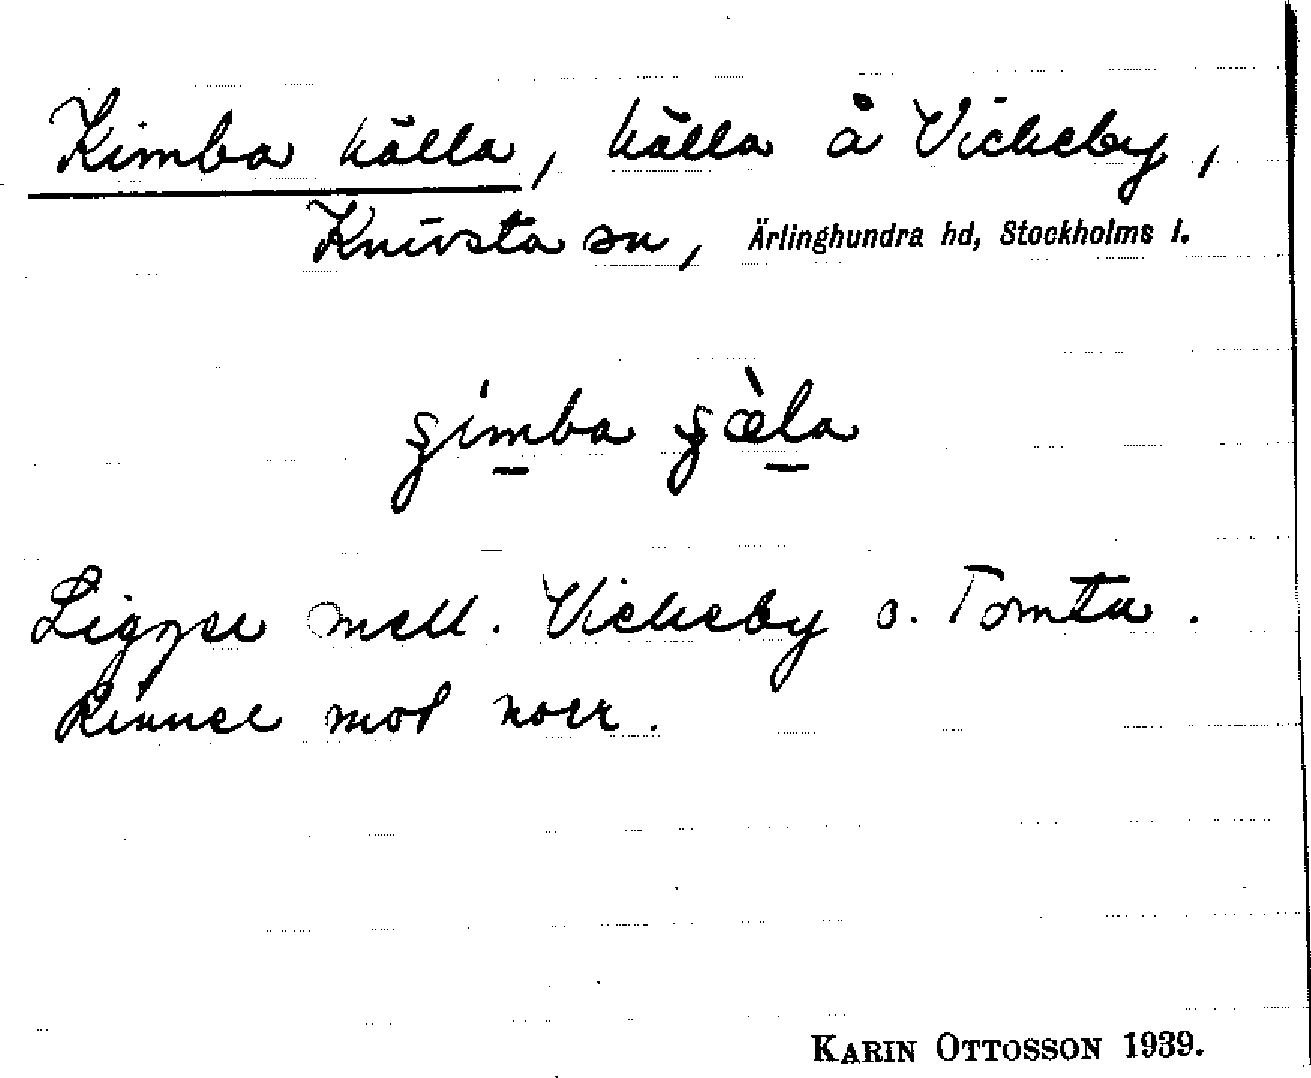 Kimba källa, källa å Vickeby,
Knivsta sn, Ärlinghundra hd, Stockholms l.
ʂímba ʂæ̀la
Ligger mell. Vickeby o. Tomta.
Rinner mot norr.
KARIN OTTOSSON 1939.